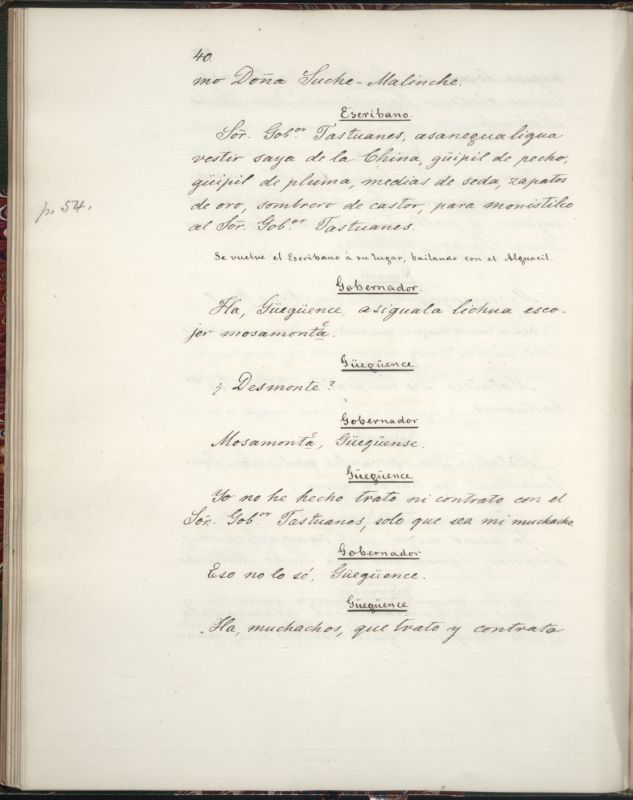 40.
mo Doña Suche-Malinche.
Escribano.
Sor. Gobor. Tastuanes, asanegualigua
vestir saya de la China, güipil de pecho,
güipil de pluma, medias de seda, zapatos
de oro, sombrero de castor, para monistilco
p. 54.
al Sor. Gobor. Tastuanes.
Se vuelve el Escribano á su lugar, bailando con el Alguacil.
Gobernador.
Ha, Güegüence, asiguala lichua esco-
jer mosamontá.
e
Güegüence
¿Desmonte?
Gobernador
Mosamontá, Güegüense.
e
Güegüence
Yo no he hecho trato ni contrato con el
Sor. Gobor. Tastuanes, solo que sea mi muchacho
Gobernador
Eso no lo sé, Güegüence.
Güegüence
Ha, muchachos, que trato y contrato